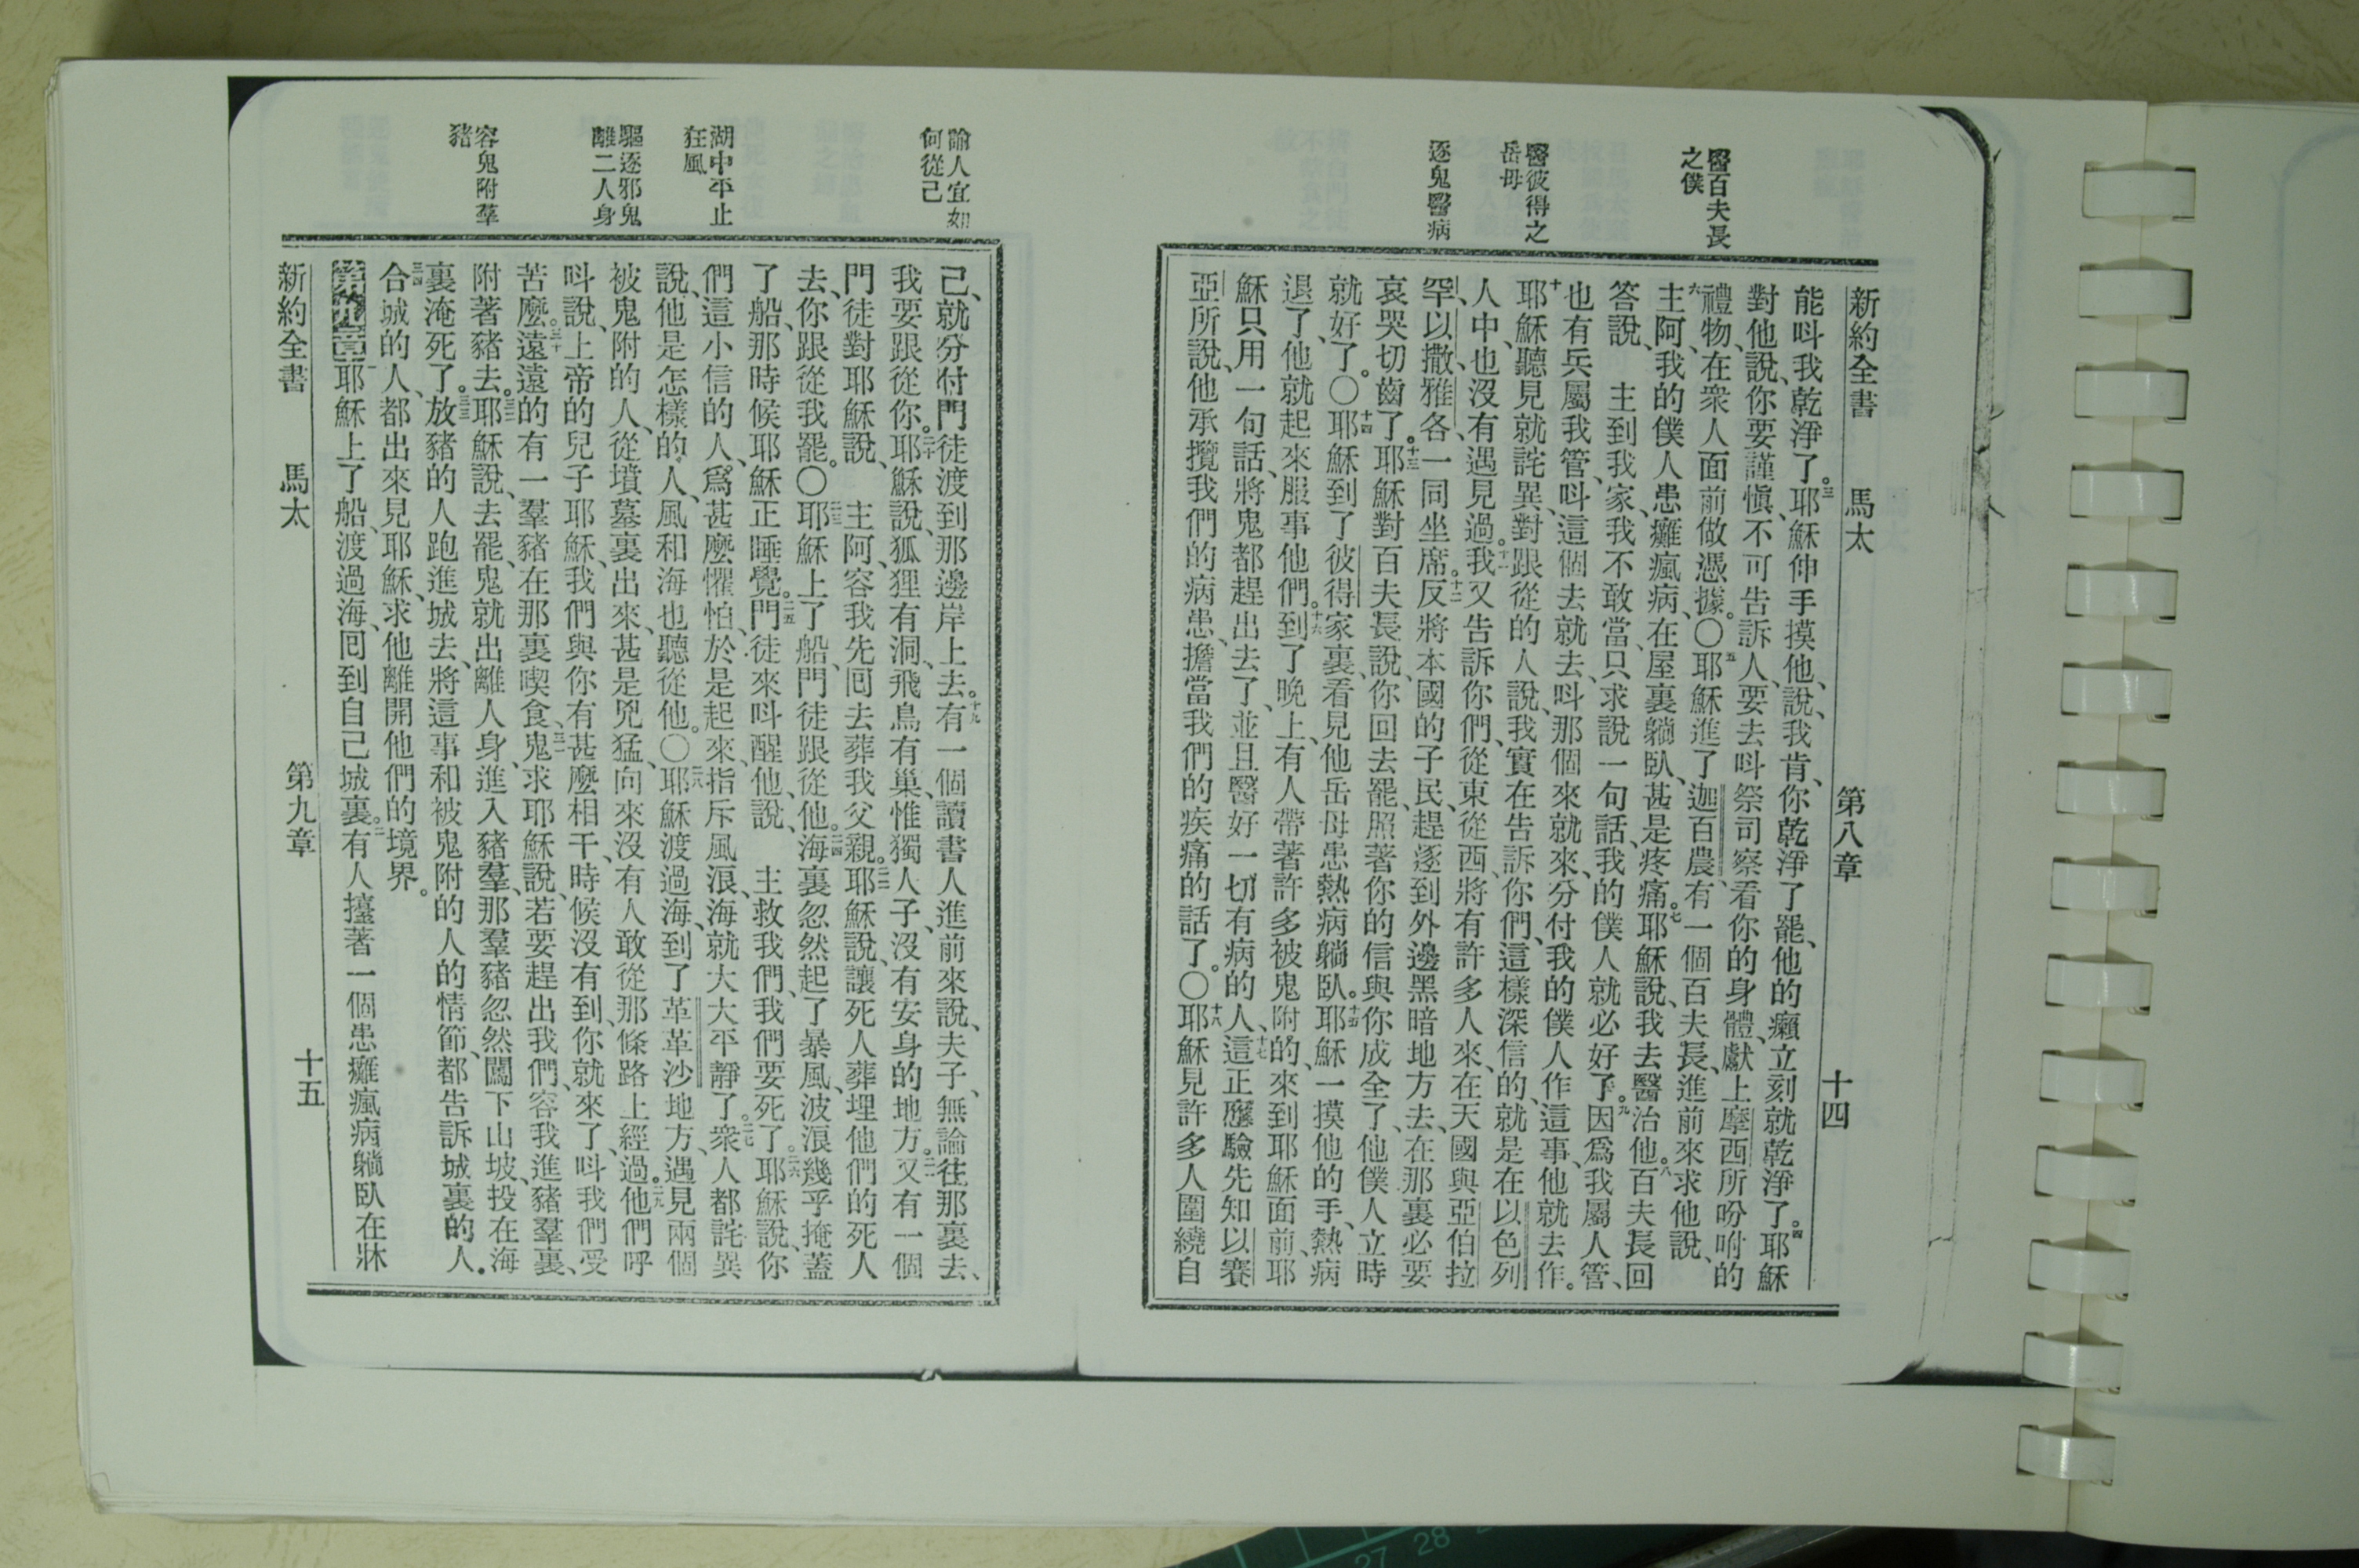 新約全書 馬太 第八章 十四
醫百夫長之僕
醫彼得之岳母
逐鬼醫病
能呌我乾淨了。三耶穌伸手摸他、說、我肯、你乾淨了罷、他的癩立刻就乾淨了。四耶穌
對他說、你要謹愼、不可告訴人、要去呌祭司察看你的身體、獻上摩西所吩咐的
禮物、在衆人面前做憑據。〇五耶穌進了迦百農、有一個百夫長、進前來求他說、
六主阿、我的僕人患癱瘋病、在屋裏躺臥、甚是疼痛。七耶穌說、我去醫治他。八百夫長回
答說、 主到我家、我不敢當、只求說一句話、我的僕人就必好了。九因爲我屬人管、
也有兵屬我管、呌這個去就去、呌那個來就來、分付我的僕人作這事、他就去作。
十耶穌聽見就詫異、對跟從的人說、我實在告訴你們、這樣深信的、就是在以色列
人中、也沒有遇見過。十一我又告訴你們、從東從西、將有許多人來、在天國與亞伯拉
罕、以撒、雅各、一同坐席。十二反將本國的子民、趕逐到外邊黑暗地方去、在那裏必要
哀哭切齒了。十三耶穌對百夫長說、你回去罷、照著你的信與你成全了、他僕人立時
就好了。〇十四耶穌到了彼得家裏、看見他岳母患熱病躺臥。十五耶穌一摸他的手、熱病
退了、他就起來、服事他們。十六到了晚上、有人帶著許多被鬼附的、來到耶穌面前、耶
穌只用一句話、將鬼都趕出去了、並且醫好一切有病的人、十七這正應驗先知以賽
亞所說、他承攬我們的病患、擔當我們的疾痛的話了。〇十八耶穌見許多人圍繞自
諭人宜如何從己
湖中平止狂風
驅逐邪鬼離二人身
容鬼附羣豬
己、就分付門徒渡到那邊岸上去。十九有一個讀書人進前來說、夫子、無論往那裏去、
我要跟從你。二十耶穌說、狐狸有洞、飛鳥有巢、惟獨人子、沒有安身的地方。二一又有一個
門徒對耶穌說、 主阿、容我先囘去葬我父親。二二耶穌說、讓死人葬埋他們的死人
去、你跟從我罷。〇二三耶穌上了船、門徒跟從他。二四海裏忽然起了暴風、波浪幾乎掩蓋
了船、那時候耶穌正睡覺。二五門徒來呌醒他、說、 主救我們、我們要死了。二六耶穌說、你
們這小信的人、爲甚麼懼怕、於是起來、指斥風浪、海就大大平靜了。二七衆人都詫異
說、他是怎樣的人、風和海也聽從他。〇二八耶穌渡過海、到了革革沙地方、遇見兩個
被鬼附的人、從墳墓裏出來、甚是兇猛、向來沒有人敢從那條路上經過。二九他們呼
呌說、上帝的兒子耶穌、我們與你有甚麼相干、時候沒有到、你就來了、呌我們受
苦麼。三十遠遠的有一羣豬在那裏喫食、三一鬼求耶穌說、若要趕出我們、容我進豬羣裏、
附著豬去。三二耶穌說、去罷、鬼就出離人身、進入豬羣、那羣豬忽然闖下山坡、投在海
裏淹死了。三三放豬的人跑進城去、將這事和被鬼附的人的情節、都告訴城裏的人。
三四合城的人、都出來見耶穌、求他離開他們的境界。
第九章 一耶穌上了船、渡過海、囘到自己城裏。二有人擡著一個患癱瘋病躺臥在牀
新約全書 馬太 第九章 十五
27 28